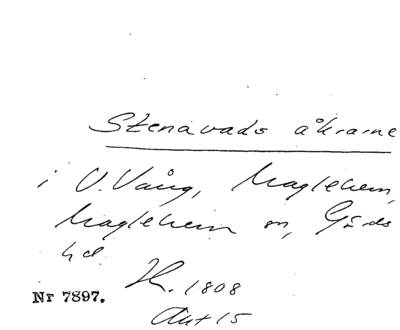 Stenavads åkrarne
i V. Vång, Maglehem,
Maglehem sn, Gärds
hd.
H. 1808
Nr 7897.
Akt 15